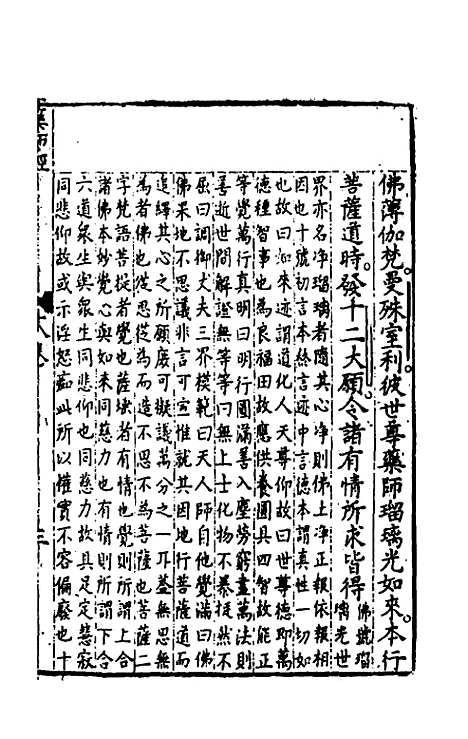 佛薄伽梵曼殊室利彼世尊藥師瑠璃光如來本行
菩薩道時發十二大願令諸有情所求皆得
佛號瑠
璃光世
界亦名净瑠璃者隨其心净則佛土净正報依報相
因也十號初言本絲言迹中言德本謂真性一切如
也故曰如來迹謂道化人天尊仰故曰世尊德即萬
德種智事也為良福田故應供養圓具四智故能正
等覺萬行真明曰明行圓滿善入塵勞窮盡萬法則
善逝世間解證無等等曰無上士化物不暴挺然不
屈曰調御丈夫三界模範曰天人師自他覺滿曰佛
佛果地不思議非言可宣惟就其因地行菩薩道而
追繹其心之所願庶可擬議萬分之一耳盖無思無
為者佛也從思從為而造不思不為菩薩也菩薩二
字梵語菩提者覺也薩埵者有情也覺則所謂上合
諸佛本妙覺心與如來同慈力也有情則所謂下合
六道衆生與衆生同悲仰也同慈力故具足定慧寂
同悲仰故或示淫怒癡此所以權實不容偏廢也十
藥師經
卷
三